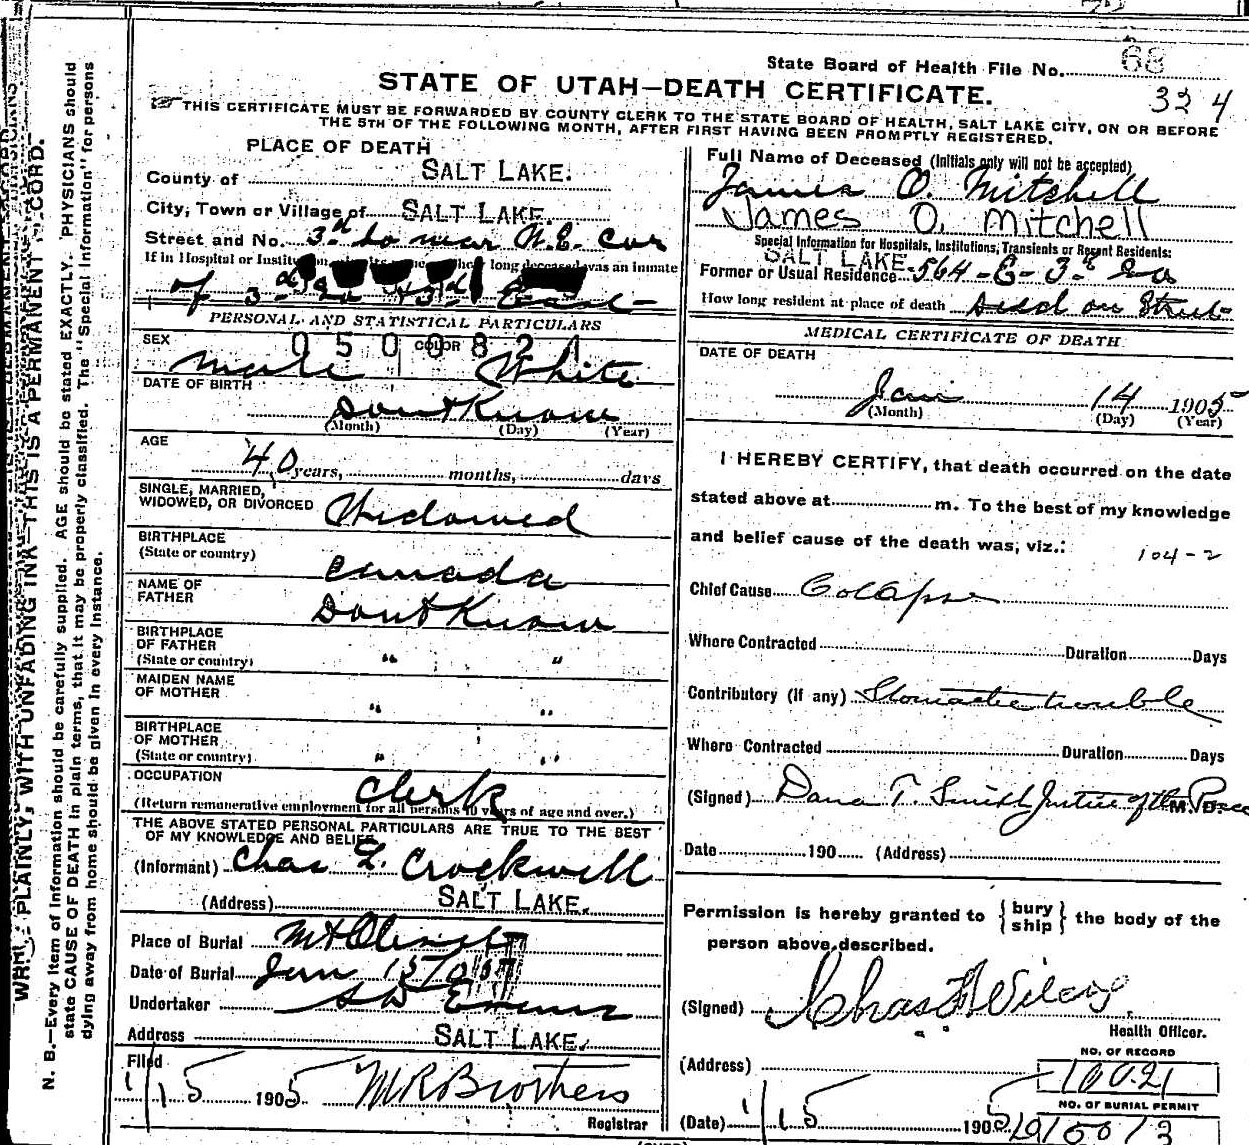 State Board of Health File No. 68
STATE OF UTAH—DEATH CERTIFICATE.
324
THIS CERTIFICATE MUST BE FORWARDED BY COUNTY CLERK TO THE STATE BOARD OF HEALTH, SALT LAKE CITY, ON OR BEFORE
THE 5TH OF THE FOLLOWING MONTH, AFTER FIRST HAVING BEEN PROMPTLY REGISTERED.
PLACE OF DEATH
County of SALT LAKE.
City, Town or Village of SALT LAKE.
Street and No. 3d So near N.E. Cor
If in Hospital or long deceased was an inmate
of 3d So 3d East
PERSONAL AND STATISTICAL PARTICULARS
0500821
SEX Male COLOR White
DATE OF BIRTH Dont Know
(Month) (Day) (Year)
AGE 40 years, months, days
SINGLE, MARRIED,
WIDOWED, OR DIVORCED Widowed
BIRTHPLACE
(State or country) Canada
NAME OF
FATHER Dont Know
BIRTHPLACE
OF FATHER
(State or country) " "
MAIDEN NAME
OF MOTHER " "
BIRTHPLACE
OF MOTHER
(State or country) " "
OCCUPATION Clerk
(Return remunerative employment for all persons 10 years of age and over.)
THE ABOVE STATED PERSONAL PARTICULARS ARE TRUE TO THE BEST
OF MY KNOWLEDGE AND BELIEF
(Informant) Chas F. Crockwell
(Address) SALT LAKE.
Place of Burial Mt Olivet
Date of Burial Jan 15/05
Undertaker S D Evans
Address SALT LAKE.
Filed
1/15 1905 M R Brothers
Registrar
Full Name of Deceased (Initials only will not be accepted)
James O. Mitshell
James O. Mitchell
Special Information for Hospitals, Institutions, Transients or Recent Residents:
SALT LAKE
Former or Usual Residence 564-E-3d So
How long resident at place of death Died on Street
MEDICAL CERTIFICATE OF DEATH
DATE OF DEATH
Jan 14 1905
(Month) (Day) (Year)
I HEREBY CERTIFY, that death occurred on the date
stated above at m. To the best of my knowledge
and belief cause of the death was, viz.: 104-2
Chief Cause Colapse
Where Contracted Duration Days
Contributory (if any) Stomache trouble
Where Contracted Duration Days
(Signed) Dana T. Smith Justice of the Peace M. D.
Date 190 (Address)
Permission is hereby granted to { bury ship } the body of the
person above described.
(Signed) Chas F Wilcox
Health Officer.
(Address)
NO. OF RECORD
10021
NO. OF BURIAL PERMIT
(Date) 1/15 1905
WRITE PLAINLY, WITH UNFADING INK—THIS IS A PERMANENT RECORD.
N. B.—Every item of information should be carefully supplied. AGE should be stated EXACTLY. PHYSICIANS should
state CAUSE OF DEATH in plain terms, that it may be properly classified. The "Special Information" for persons
dying away from home should be given in every instance.